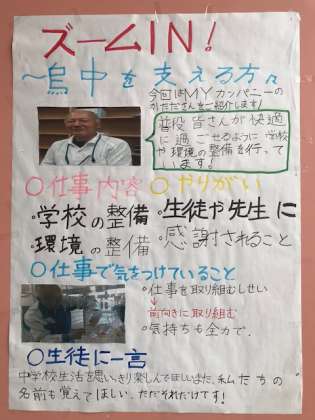 ズームIN!
～烏中を支える方々
今回はMYカンパニーの
かたださんをご紹介します!
普段皆さんが快適
に過ごせるように学校
や環境の整備を行って
います!
○仕事内容
・学校の整備
・環境の整備
○やりがい
・生徒や先生に
感謝されること
○仕事で気をつけていること
・仕事を取り組むしせい
→前向きに取り組む
・気持ちも全力で。
○生徒に一言
中学校生活を思いっきり楽しんでほしい。また、私たちの
名前も覚えてほしい、ただそれだけです!